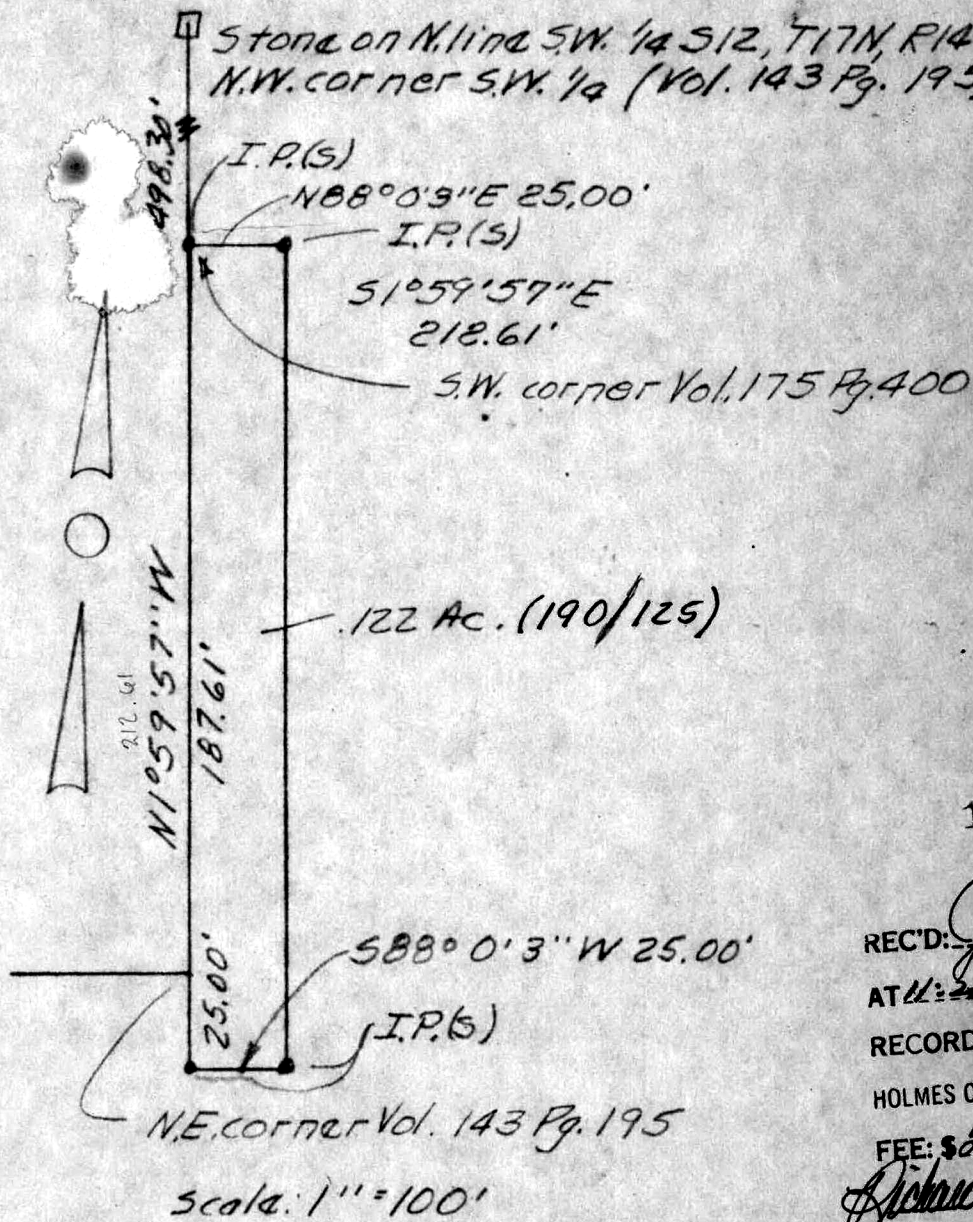 Stone on N.line S.W. 1/4 S12, T17N, R14
N.W. corner S.W. 1/4 (Vol. 143 Pg. 195
498.30'
I.P.(S)
N88°0'3"E 25.00'
I.P.(S)
S1°59'57"E
212.61'
S.W. corner Vol. 175 Pg. 400
N1°59'57"W
212.61
187.61'
.122 Ac. (190/125)
25.00'
S88°0'3"W 25.00'
I.P.(S)
N.E. corner Vol. 143 Pg. 195
Scale: 1"=100'
REC'D:
AT 11:
RECORD
HOLMES
FEE: $